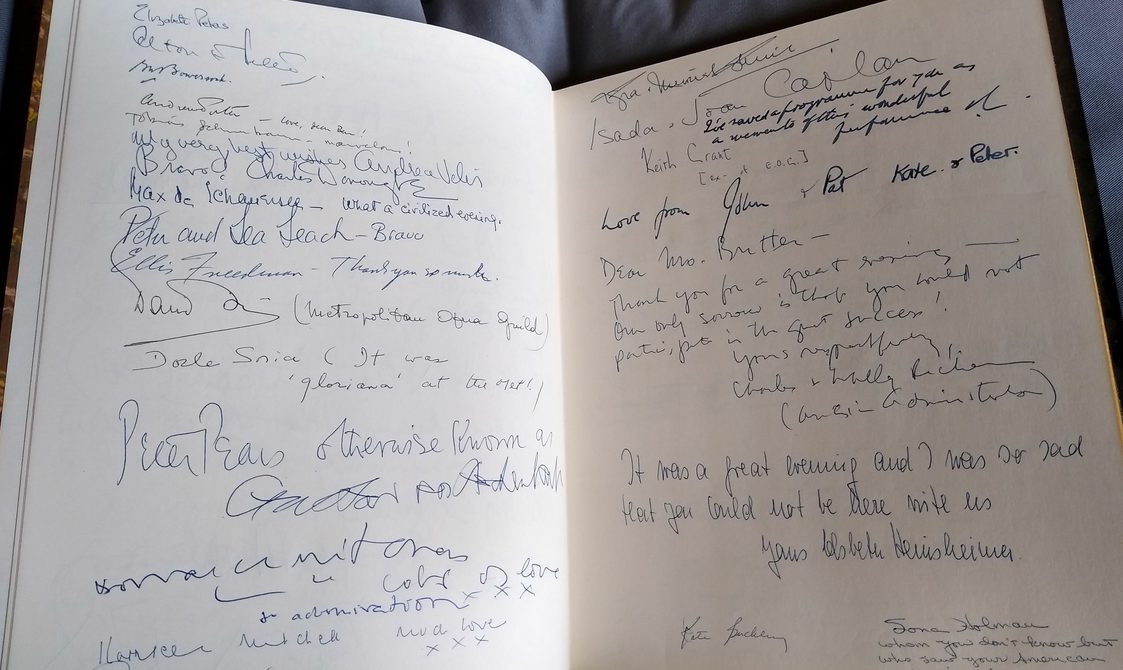 Elizabeth Peters
love, dear Ben!
marvelous!
My very best wishes Andrea Velis
Bravo! Charles
Max de Schauensee — What a civilized evening.
Peter and Lea Leach — Bravo
Ellis Freedman — Thank you so much.
David (Metropolitan Opera Guild)
Dorle Soria (It was
'gloriana' at the Met!)
Peter Pears otherwise known as
von Aschenbach
lots of love
x x x
& admiration
Mitchell much love
x x x
Joan Caplan
Isada
I've saved a programme for you as
a memento of this wonderful
performance
Keith Grant
[ex- E.O.G.]
Love from John & Pat Kate & Peter.
Dear Mr. Britten —
Thank you for a great evening —
Our only sorrow is that you could not
participate in the great success!
Yours respectfully,
Charles & Riecker
(Administrator)
It was a great evening and I was so sad
that you could not be here with us
Yours Elsbeth Heinsheimer.
Kate
Sona Holman
whom you don't know but
who saw your American